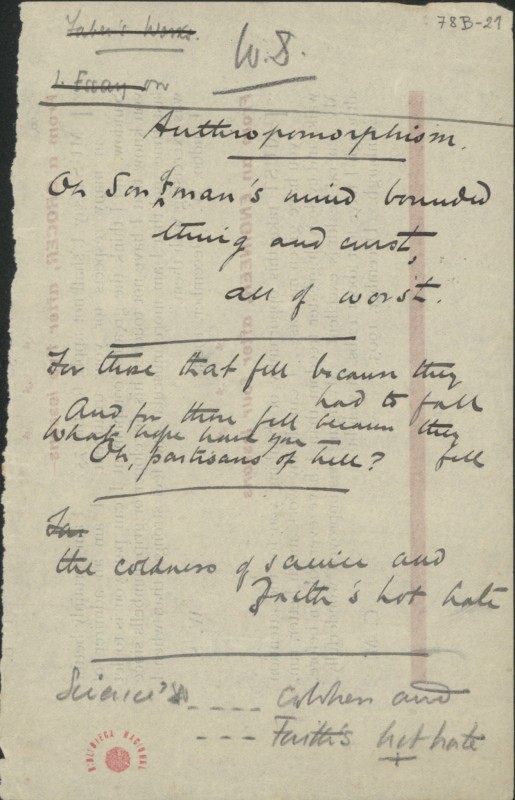 78B-21
Faber's Works.
W.S.
1. Essay on
Anthropomorphism.
Oh Son of man's mind bounded
thing and curst,
all of worst.
For those that fell because they
had to fall
And for those fell because they
fell
What hope have you
Oh, partisans of hell?
For
the coldness of science and
Faith's hot hate
Science's ---- coldness and
--- Faith's hot hate
BIBLIOTECA NACIONAL